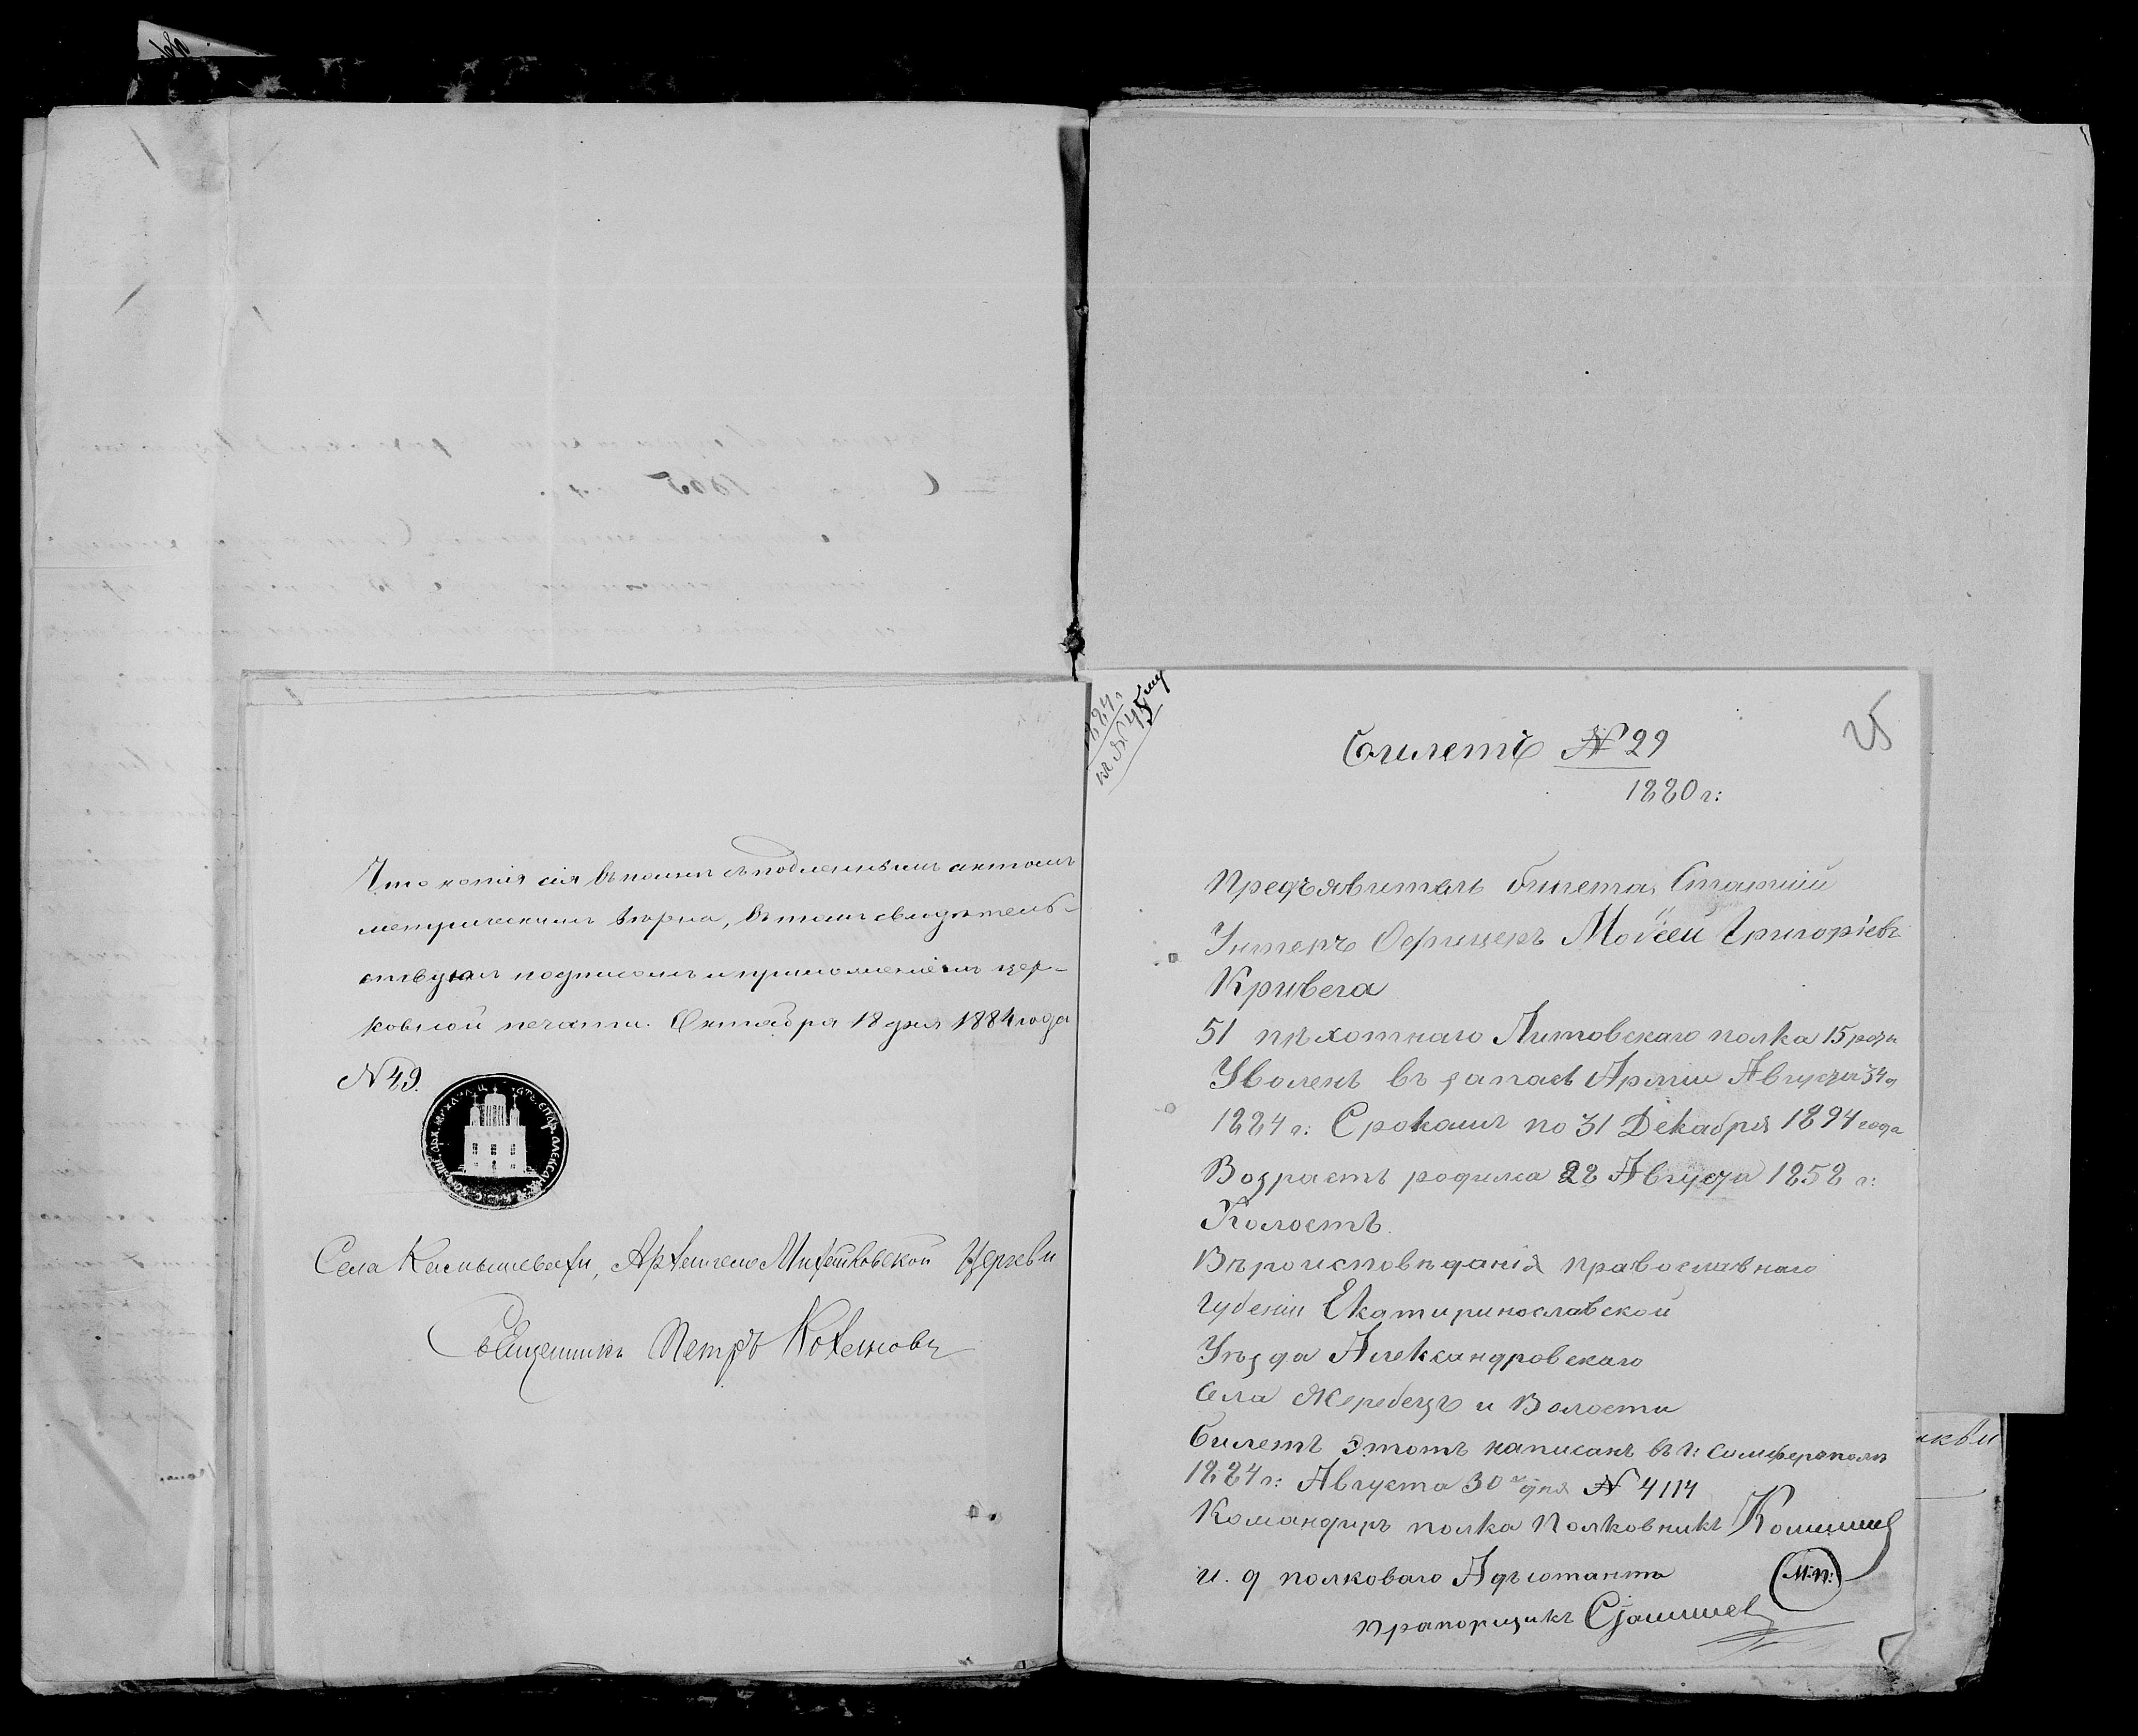 Что копія сія вполнѣ съ подленнымъ актомъ
метрическимъ вѣрна, въ томъ свидѣтель-
ствуемъ подписомъ и приложеніемъ цер-
ковной печати. Октября 18 дня 1884 года
№ 49.
Села Камышевахи, Архангело Михайловской Церкви
Священникъ Петръ
1884 г
къ № 45му
25
Билетъ № 29
1880 г:
Предъявитель билета, Старшій
Унтеръ Офицеръ Моѵсей Григорьевъ
Кривега
51 пѣхотнаго Литовскаго полка 15 роты
Уволенъ въ запасъ Арміи Августа
1884 г: Срокомъ по 31 Декабря 1894 года
Возрастъ родился 28 Августа 1858 г:
Холостъ.
Вѣроисповѣданія православнаго
Губеніи Екатиринославской
Уѣзда Александровскаго
села Жеребецъ и Волости
билетъ этотъ написанъ въ г: Симферополѣ
1884 г: Августа 30 дня № 4114
Командиръ полка Полковникъ
и. д полковаго Адъютанта
М.П.
прапорщикъ